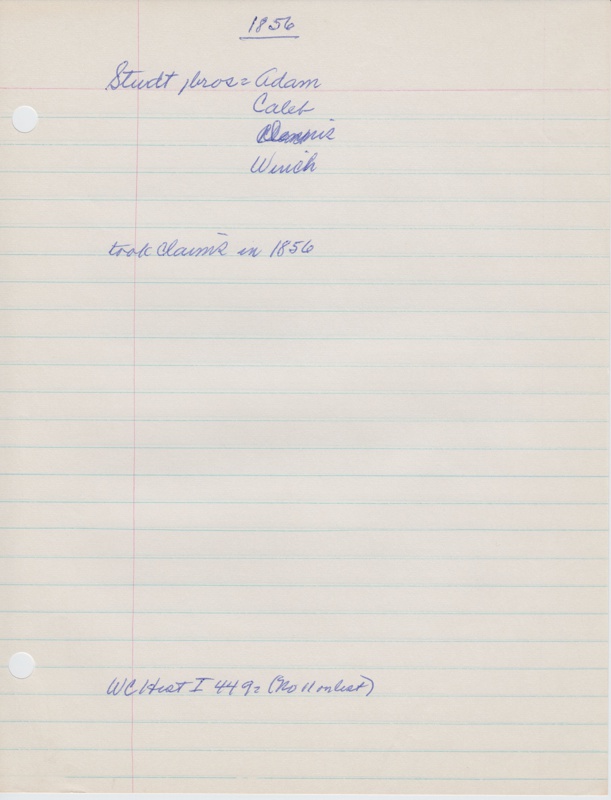 1856
Studt bros = Adam
Caleb
Dennis
Winich
took Claims in 1856
WC Hist I 449 = (No 11 on list)